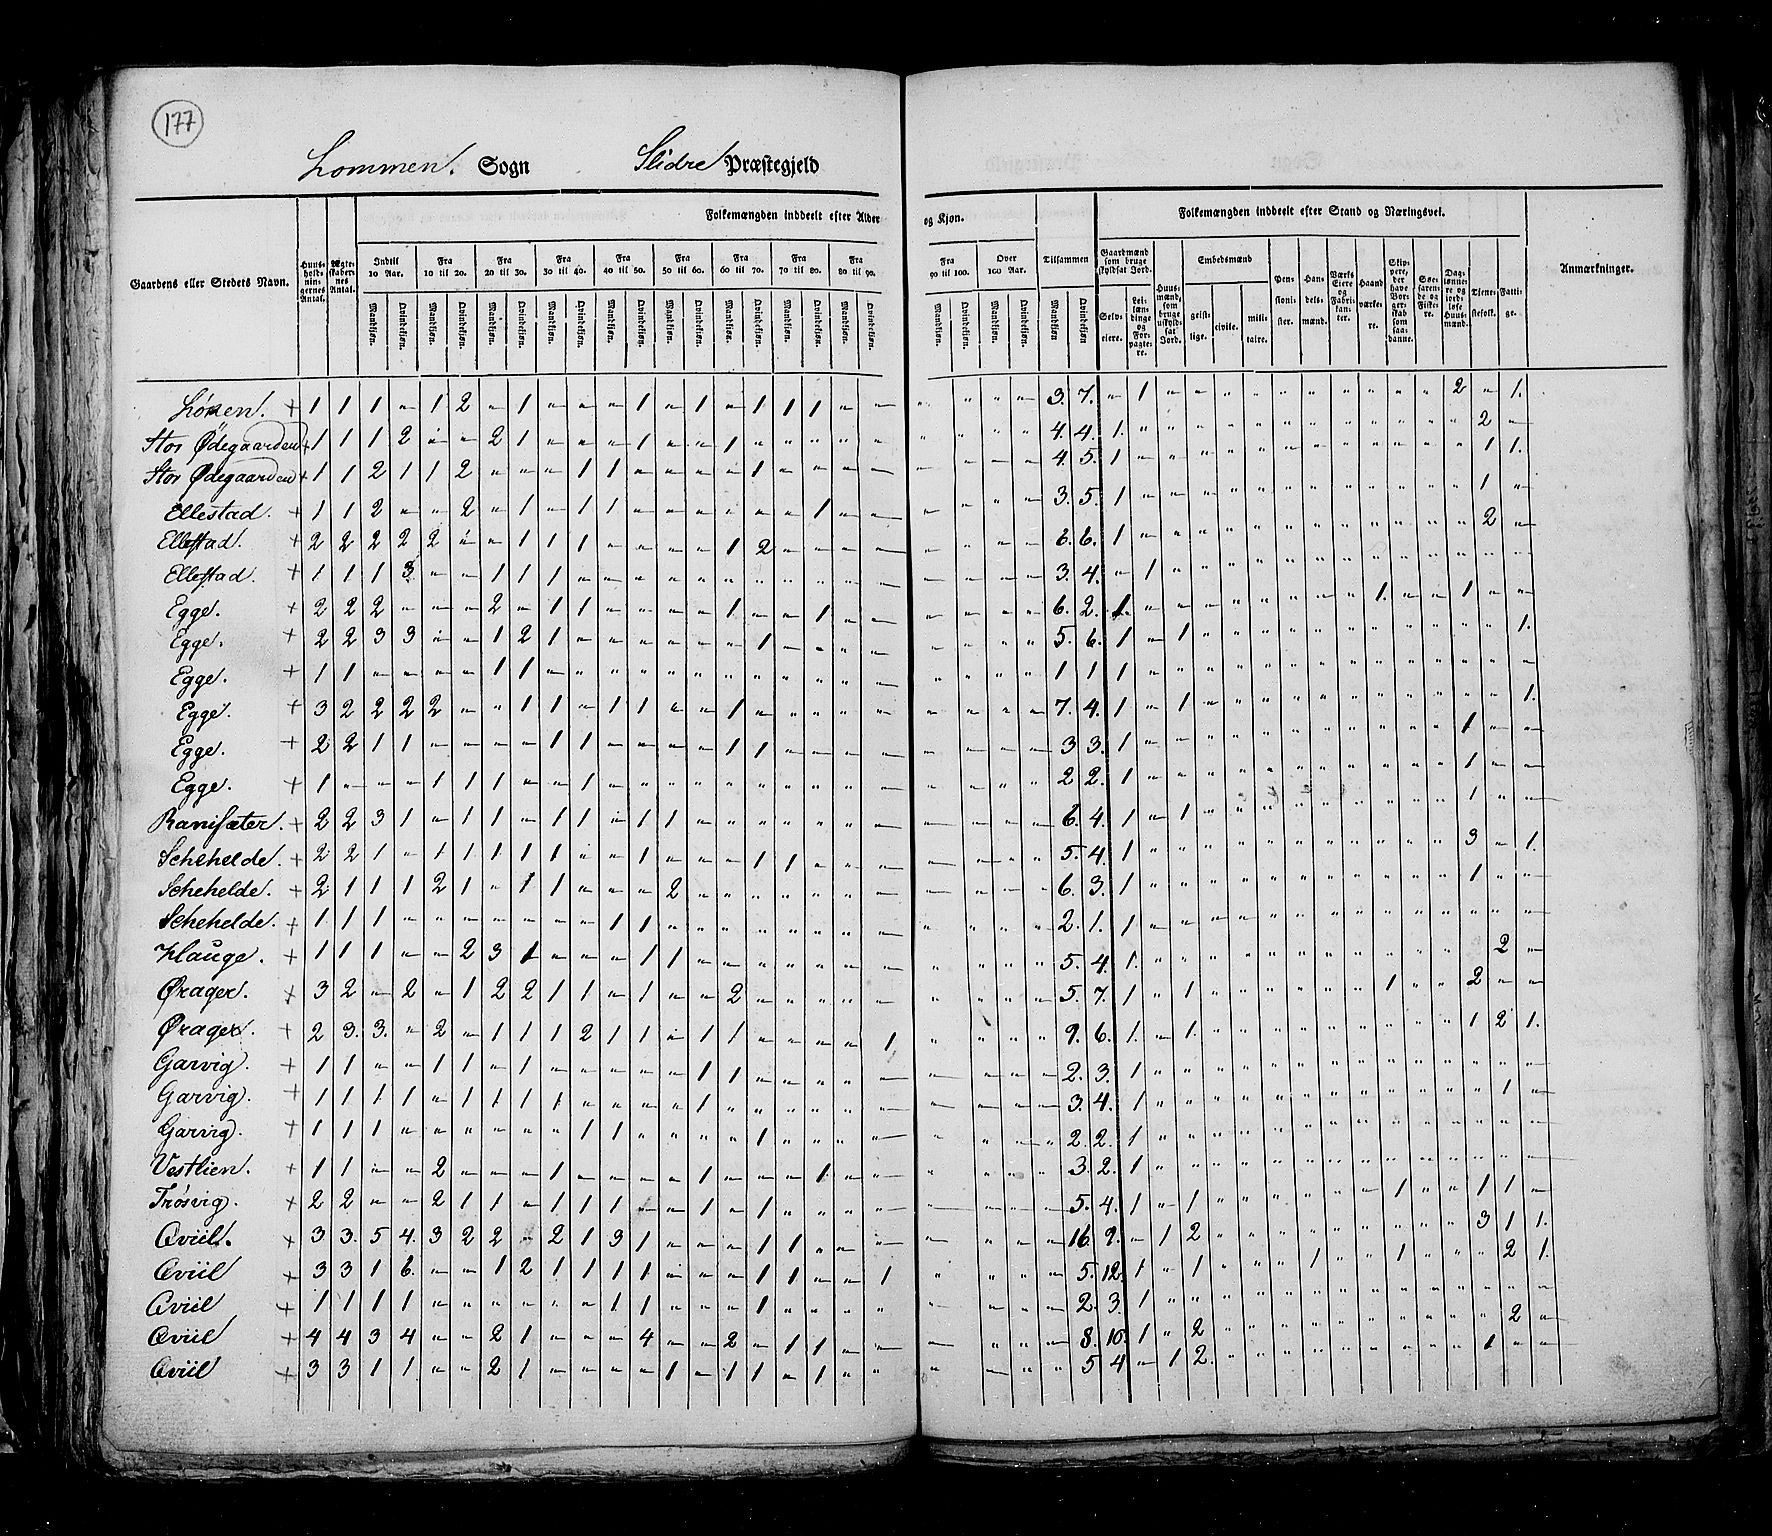 177
Lommen. Sogn Slidre Præstegjeld
Gaardens eller Stedets Navn. Huusholdningernes Antal. Ægteskabernes Antal. Folkemængden inddeelt efter Alder og Kjøn. Tilsammen Folkemængden inddeelt efter Stand og Næringsvei. Anmærkninger.
Indtil 10 Aar. Fra 10 til 20. Fra 20 til 30. Fra 30 til 40. Fra 40 til 50. Fra 50 til 60. Fra 60 til 70. Fra 70 til 80. Fra 80 til 90. Fra 90 til 100. Over 100 Aar. Gaardmænd som bruge skyldsat Jord. Huusmænd, som bruge uskyldsat Jord. Embedsmænd Pensionister. Handelsmænd. Værks Eiere og Fabrikanter. Haandværkere. Skippere, der have Borgerskab som saadanne. Søefarende og Fiskere. Daglønnere og jordløse Huusmænd. Tjenestefolk. Fattige.
Mandkjøn. Qvindekjøn. Mandkjøn. Qvindekjøn. Mandkjøn. Qvindekjøn. Mandkjøn. Qvindekjøn. Mandkjøn. Qvindekjøn. Mandkjøn. Qvindekjøn. Mandkjøn. Qvindekjøn. Mandkjøn. Qvindekjøn. Mandkjøn. Qvindekjøn. Mandkjøn. Qvindekjøn. Mandkjøn. Qvindekjøn. Mandkjøn Qvindekjøn Selveiere. Leilændinge og Forpagtere. geistlige. civile. militaire.
Lønen. + 1 1 1 " 1 2 " 1 " " " 1 " 1 " 1 1 1 " " " " " " 3. 7. " 1 " " " " " " " " " " 2 " 1.
Stor Ødegaarden + 1 1 1 2 " " 2 1 " " " 1 " " 1 " " " " " " " " " 4. 4. 1. " " " " " " " " " " " " 2 "
Stor Ødegaarden + 1 1 2 1 1 2 " " " 1 1 " " " " 1 " " " " " " " " 4. 5. 1 " " " " " " " " " " " " 1 1.
Ellestad. + 1 1 2 " " 2 " 1 " 1 1 " " " " " " 1 " " " " " " 3. 5. 1 " " " " " " " " " " " " 1 "
Ellestad. + 2 2 2 2 2 " " 1 1 1 " " " " 1 2 " " " " " " " " 6. 6. 1 " " " " " " " " " " " " 2 "
Ellestad. + 1 1 1 3 " " 1 1 1 " " " " " " " " " " " " " " " 3. 4. " 1 " " " " " " " " " " " " "
Egge. + 2 2 2 " " " 2 " 1 1 " " " " 1 " " 1 " " " " " " 6. 2. 1. " " " " " " " " 1. " " 1 " "
Egge. + 2 2 3 3 " " 1 2 1 " " " " " " 1 " " " " " " " " 5. 6. 1 " 1 " " " " " " " " " " " 1.
Egge. + 1 1 " " " " 1 1 " " " " " " " " " " " " " " " " 1 1 1 " " " " " " " " " " " " " "
Egge. + 3 2 2 2 2 " " 1 1 " 1 1 " " 1 " " " " " " " " " 7. 4. 1 " 1 " " " " " " " " " " " 1.
Egge. + 2 2 1 1 " " " " 1 1 " " " " 1 1 " " " " " " " " 3 3. 1 " " " " " " " " " " " 1 " "
Egge. + 1 " " " 1 1 1 " " 1 " " " " " " " " " " " " " " 2 2. 1 " " " " " " " " " " " 1 " "
Ranisæter. + 2 2 3 1 " 1 1 " 1 1 " 1 1 " " " " " " " " " " " 6. 4. 1 " 1 " " " " " " " " " 1 " "
Schehelde. + 2 2 1 " 1 1 1 1 1 " " 1 " " " 1 1 " " " " " " " 5. 4. 1 " " " " " " " " " " " 3 " 1.
Schehelde. + 2 1 1 1 2 1 " 1 1 " " " 2 " " " " " " " " " " " 6. 3. 1 " " " " " " " " " " " 1 " "
Schehelde. + 1 1 1 " " " " " " " 1 1 " " " " " " " " " " " " 2. 1. 1 " " " " " " " " " " " " " "
Hauge. + 1 1 1 " " 2 3 1 " " " 1 1 " " " " " " " " " " " 5. 4. 1. " " " " " " " " " " " " 2 "
Ørager. + 3 2 " 2 " 1 2 2 1 1 " 1 " " 2 " " " " " " " " " 5. 7. 1 " 1 " " " " " " 1 " " 2 " "
Ørager. + 2 3. 3. " 2 " 1 1 1 2 1 1 " 1 1 " " " " 1 " " " " 9. 6. 1. " 1. " " " " " " " " " 1 2 1.
Garvig. + 1 1 " " 1 1 " 1 " " " " " 1 1 " " " " " " " " " 2. 3. 1 " " " " " " " " " " " " " "
Garvig. + 1 1 1 1 " 1 1 1 1 " " " " 1 " " " " " " " " " " 3. 4. 1 " " " " " " " " " " " " 1 "
Garvig. + 1 1 1 " " " " " " 1 1 " " " " 1 " " " " " " " " 2. 2. 1 " " " " " " " " " " " " " "
Vestlien. + 1 1 " " 2 " " " 1 " " " " 1 " " " 1 " " " " " " 3. 2. 1 " " " " " " " " " " " " " "
Trøsvig. + 2 2 " " 2 1 1 " 1 1 1 " " 1 " 1 " " " " " " " " 5. 4. 1 " 1 " " " " " " 1 " " 1 1 "
Qviil. + 3 3. 5 4. 3 2 2 " 2 1 3 1 " " " 1 1 " " " " " " " 16. 9. " 1 2 " " " " " " " " " 3 1 1.
Qviil + 3 3 1 6. " " 1 2 1 1 1 1 " " " 1 1 " " 1 " " " " 5. 12. 1 " 1 " " " 1 " " 1 " " " 2 1.
Qviil + 1 1 1 1 " " " " " " 1 1 " " " 1 " " " " " " " " 2. 3. 1 " " " " " " " " " " " " " "
Qviil + 4 4 3 4 " " 2 1 " " " 4 " " 2 " 1 1 " " " " " " 8. 10. 1 " 2 " " " " " " " " " " 2 "
Qviil + 3 3 1 1 " " 2 1 " " " " 1 " 1 1 " 1 " " " " " " 5 4 " 1 2. " " " " " " " " " 1 " "